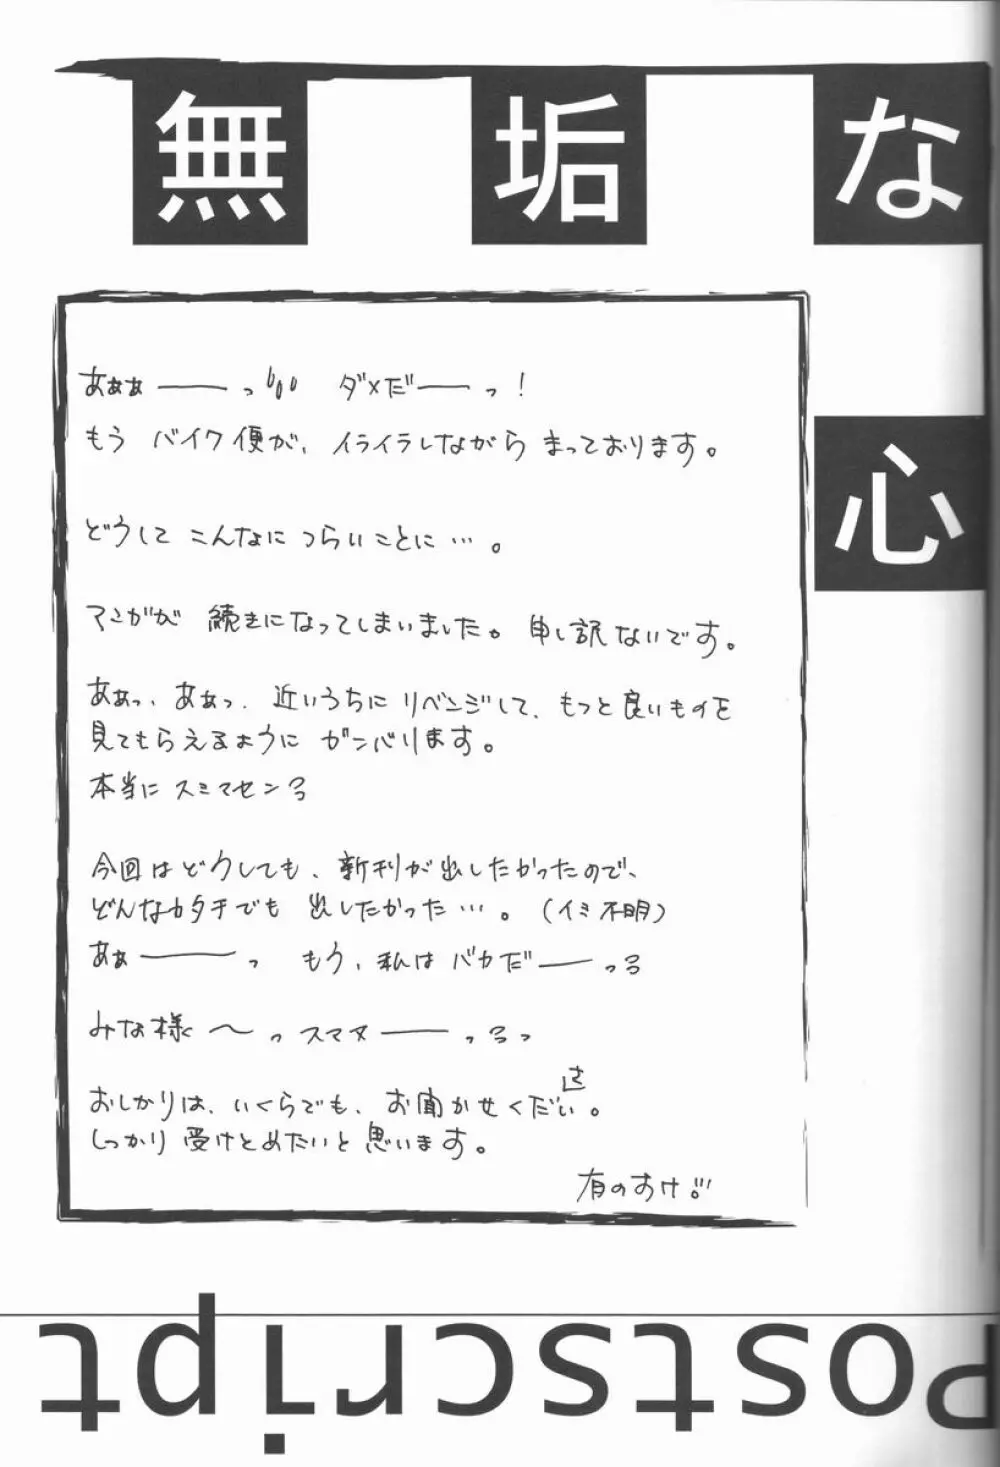 無垢な
心
あぁぁ——っ ダメだ——っ!
もう バイク便が、イライラしながら まっております。
どうして こんなに つらいことに…。
マンガが 続きになってしまいました。 申し訳ないです。
あぁっ、あぁっ、近いうちに リベンジして、もっと良いものを
見てもらえるように ガンバります。
本当に スミマセンっ
今回はどうしても、新刊が出したかったので、
どんなカタチでも 出したかった…。(イミ不明)
あぁ——っ もう、私は バカだ——っっ
みな様〜っ スマヌ——っっっ
おしかりは、いくらでも、お聞かせください。
しっかり受けとめたいと思います。
有のすけ。
Postscript